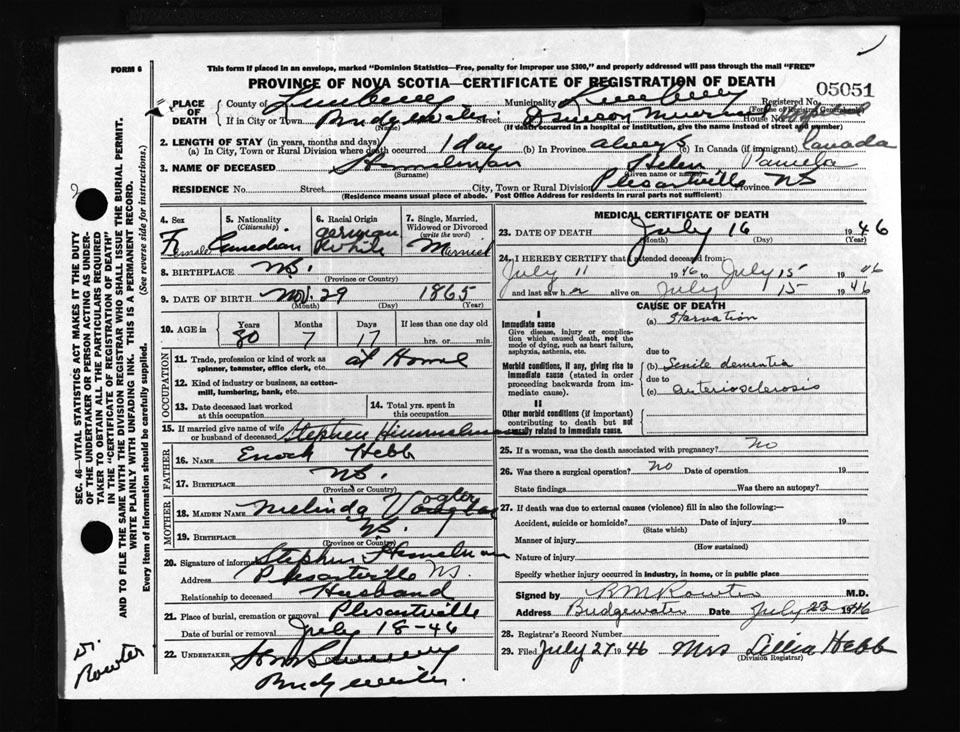 FORM 6
This form if placed in an envelope, marked "Dominion Statistics—Free, penalty for improper use $300," and properly addressed will pass through the mail "FREE"
PROVINCE OF NOVA SCOTIA—CERTIFICATE OF REGISTRATION OF DEATH
05051
1. PLACE OF DEATH County of Lunenburg Municipality Lunenburg Registered No.
If in City or Town Bridgewater Street Dawson Memorial House No. Hospital
(Name) (If death occurred in a hospital or institution, give the name instead of street and number)
2. LENGTH OF STAY (in years, months and days)
(a) In City, Town or Rural Division where death occurred 1 day (b) In Province always (c) In Canada (if immigrant) Canada
3. NAME OF DECEASED Himmelman Helen Pamela
(Surname) (Given name or names)
RESIDENCE No. Street City, Town or Rural Division Plesantville Province NS
(Residence means usual place of abode. Post Office address for residents in rural parts not sufficient)
4. Sex Female
5. Nationality (Citizenship) Canadian
6. Racial Origin German White
7. Single, Married, Widowed or Divorced (write the word) Married
8. BIRTHPLACE N.S.
(Province or Country)
9. DATE OF BIRTH Nov. 29 1865
(Month) (Day) (Year)
10. AGE in Years 80 Months 7 Days 17 If less than one day old hrs. or min.
OCCUPATION
11. Trade, profession or kind of work as spinner, teamster, office clerk, etc. at Home
12. Kind of industry or business, as cotton-mill, lumbering, bank, etc.
13. Date deceased last worked at this occupation
14. Total yrs. spent in this occupation
15. If married give name of wife or husband of deceased Stephen Himmelman
FATHER
16. NAME Enoch Hebb
17. BIRTHPLACE N.S.
(Province or Country)
MOTHER
18. MAIDEN NAME Melinda Vogler
19. BIRTHPLACE N.S.
(Province or Country)
20. Signature of informant Stephen Himelman
Address Plesantville NS.
Relationship to deceased Husband
21. Place of burial, cremation or removal Plesantville
Date of burial or removal July 18-46
22. UNDERTAKER
Bridgewater
Dr. Rowter
MEDICAL CERTIFICATE OF DEATH
23. DATE OF DEATH July 16 1946
(Month) (Day) (Year)
24. I HEREBY CERTIFY that I attended deceased from:
July 11 1946 to July 15 1946
and last saw her alive on July 15 1946
CAUSE OF DEATH
I
Immediate cause
Give disease, injury or complication which caused death, not the mode of dying, such as heart failure, asphyxia, asthenia, etc.
(a) Starvation
due to
Morbid conditions, if any, giving rise to immediate cause (stated in order proceeding backwards from immediate cause).
(b) Senile dementia
due to
(c) arteriosclerosis
II
Other morbid conditions (if important) contributing to death but not causally related to immediate cause.
25. If a woman, was the death associated with pregnancy? No
26. Was there a surgical operation? No Date of operation 19
State findings Was there an autopsy?
27. If death was due to external causes (violence) fill in also the following:—
Accident, suicide or homicide? Date of injury 19
(State which)
Manner of injury
(How sustained)
Nature of injury
Specify whether injury occurred in industry, in home, or in public place
Signed by R M Rowter M.D.
Address Bridgewater Date July 23 1946
28. Registrar's Record Number
29. Filed July 27 1946 Mrs Lillia Hebb
(Division Registrar)
SEC. 46—VITAL STATISTICS ACT MAKES IT THE DUTY
OF THE UNDERTAKER OR PERSON ACTING AS UNDERTAKER TO OBTAIN ALL THE PARTICULARS REQUIRED
IN THE "CERTIFICATE OF REGISTRATION OF DEATH"
AND TO FILE THE SAME WITH THE DIVISION REGISTRAR WHO SHALL ISSUE THE BURIAL PERMIT.
WRITE PLAINLY WITH UNFADING INK. THIS IS A PERMANENT RECORD.
Every item of Information should be carefully supplied. (See reverse side for instructions.)